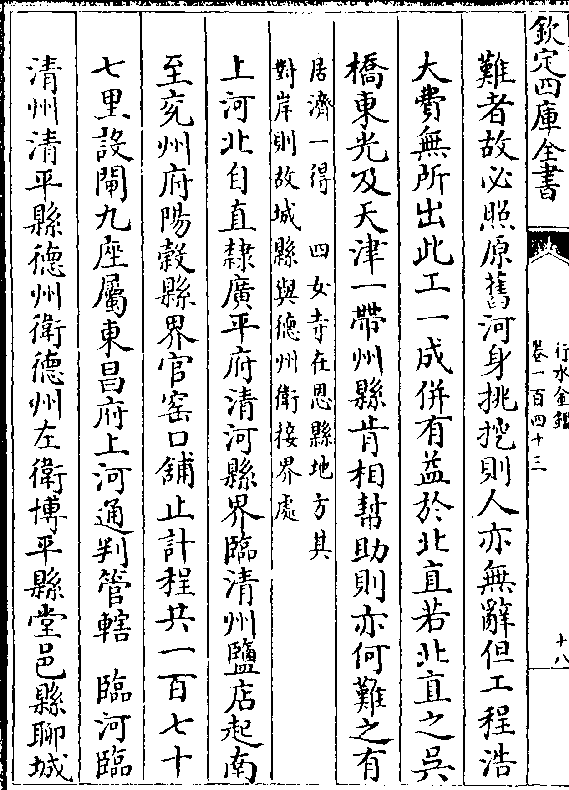 欽定四庫全書
行水金鑑
卷一百四十三
十八
難者故必照原舊河身挑挖則人亦無辭但工程浩
大費無所出此工一成併有益於北直若北直之吳
橋東光及天津一帶州縣肯相幫助則亦何難之有
居濟一得 四女寺在恩縣地方其
對岸則故城縣與德州衛接界處
上河北自直隸廣平府清河縣界臨清州鹽店起南
至兖州府陽穀縣界官窑口舖止計程共一百七十
七里設閘九座屬東昌府上河通判管轄 臨河臨
清州清平縣德州衛德州左衛博平縣堂邑縣聊城